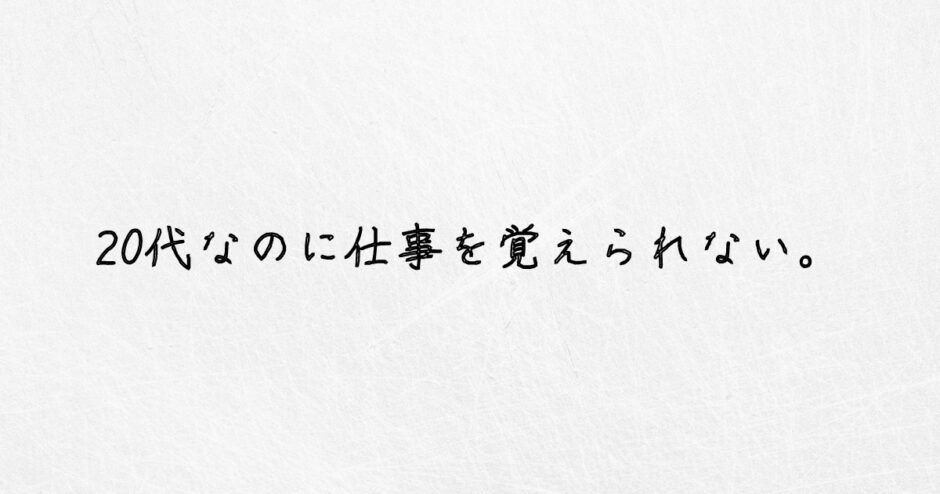 20代なのに仕事を覚えられない。